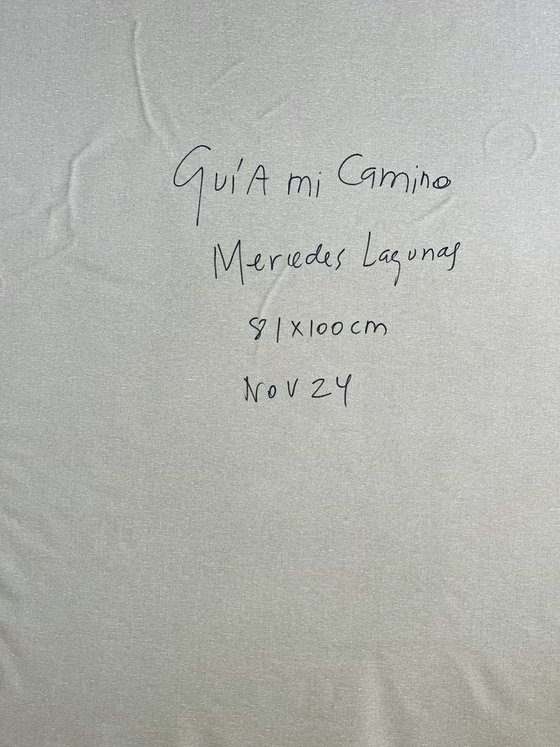 Guí'A mi Camino
Mercedes Lagunas
81x100cm
Nov 24